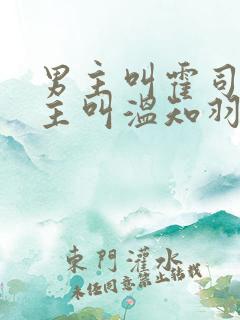 男主叫霍司
主叫温知羽
東門灌水
未经同意禁止转载